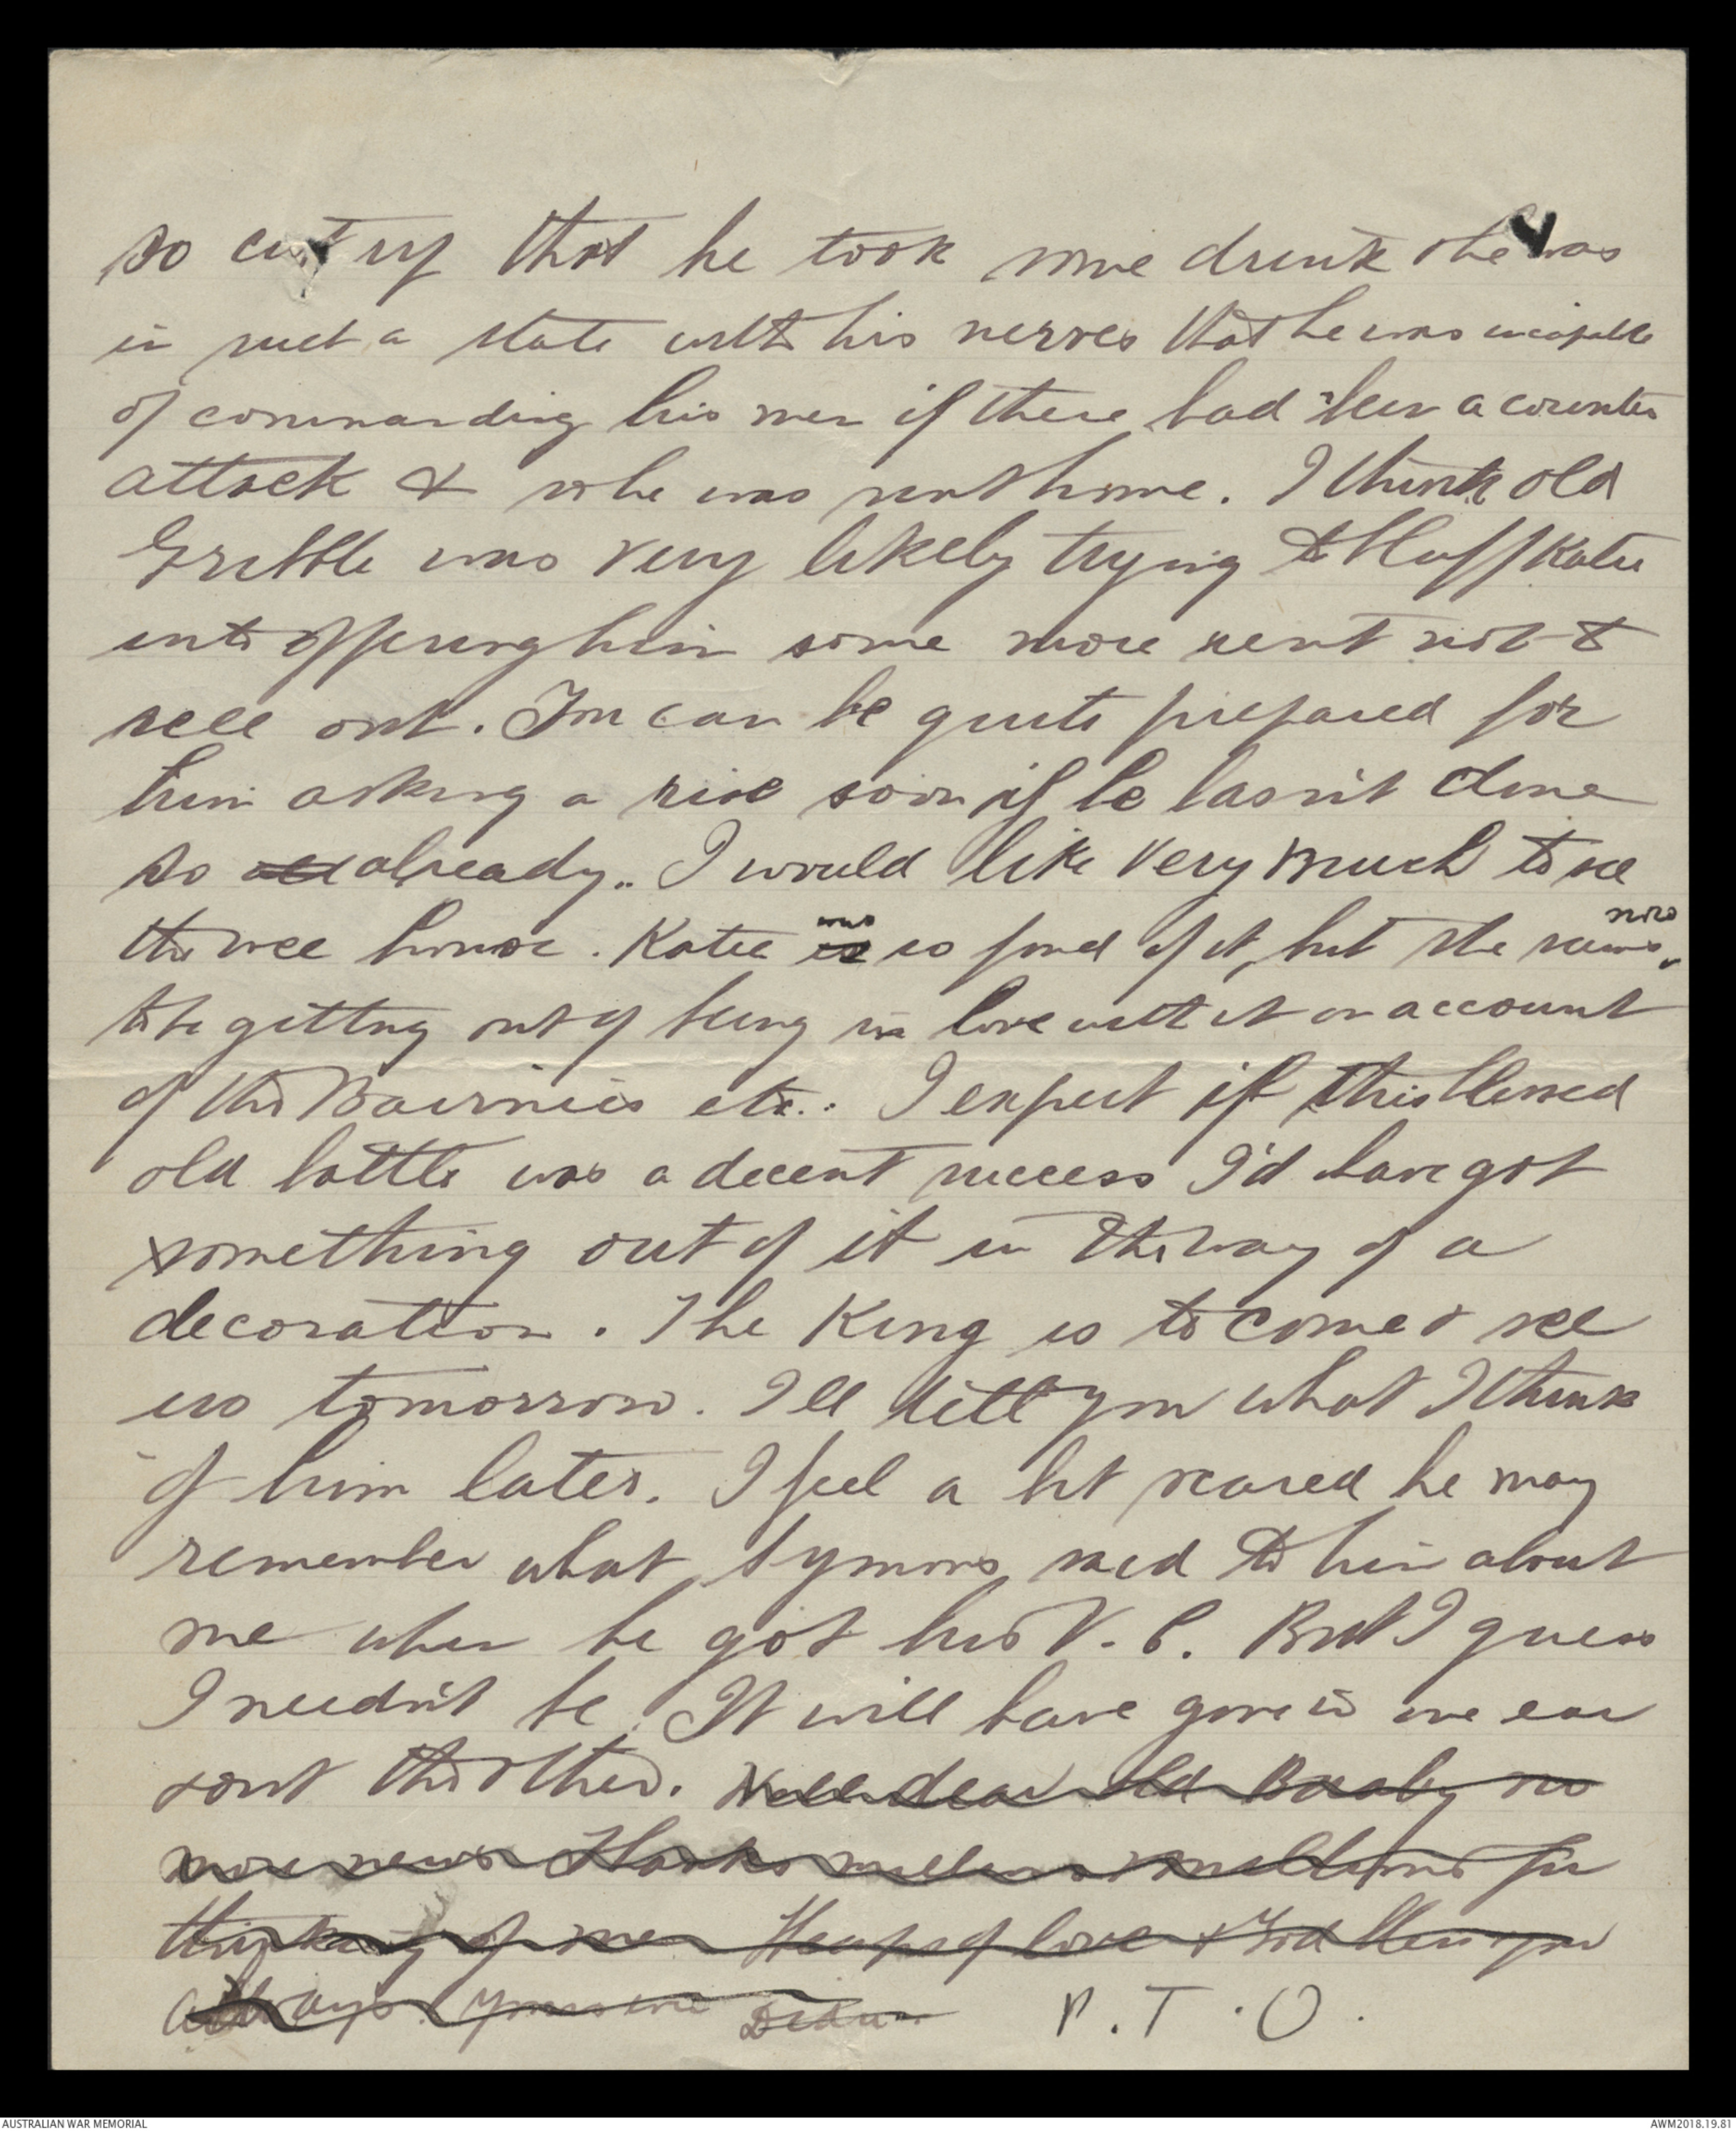 so cut up that he took some drink & he was
in such a state with his nerves that he was incapable
of commanding his men if there had been a counter
attack & so he was sent home. I think old
Gribble was very likely trying to bluff Katie
into offering him some more rent not to
sell out. You can be quite prepared for
him asking a rise soon if he hasn't done
so all already.. I would like very much to see
the wee house. Katie is was so fond of it, but she seems now
to be getting out of being in love with it on account
of the Bairnies etc.. I expect if this blessed
old battle was a decent success I'd have got
something out of it in the way of a
decoration. The King is to come & see
us tomorrow. I'll tell you what I think
of him later. I feel a bit scared he may
remember what Symons said to him about
me when he got his V.C. But I guess
I needn't be. It will have gone in one ear
& out the other. Well dear old no
more news Thanks for
thinking of me Heaps of love & God bless you
Always yours P.T.O.
AUSTRALIAN WAR MEMORIAL
AWM2018.19.81